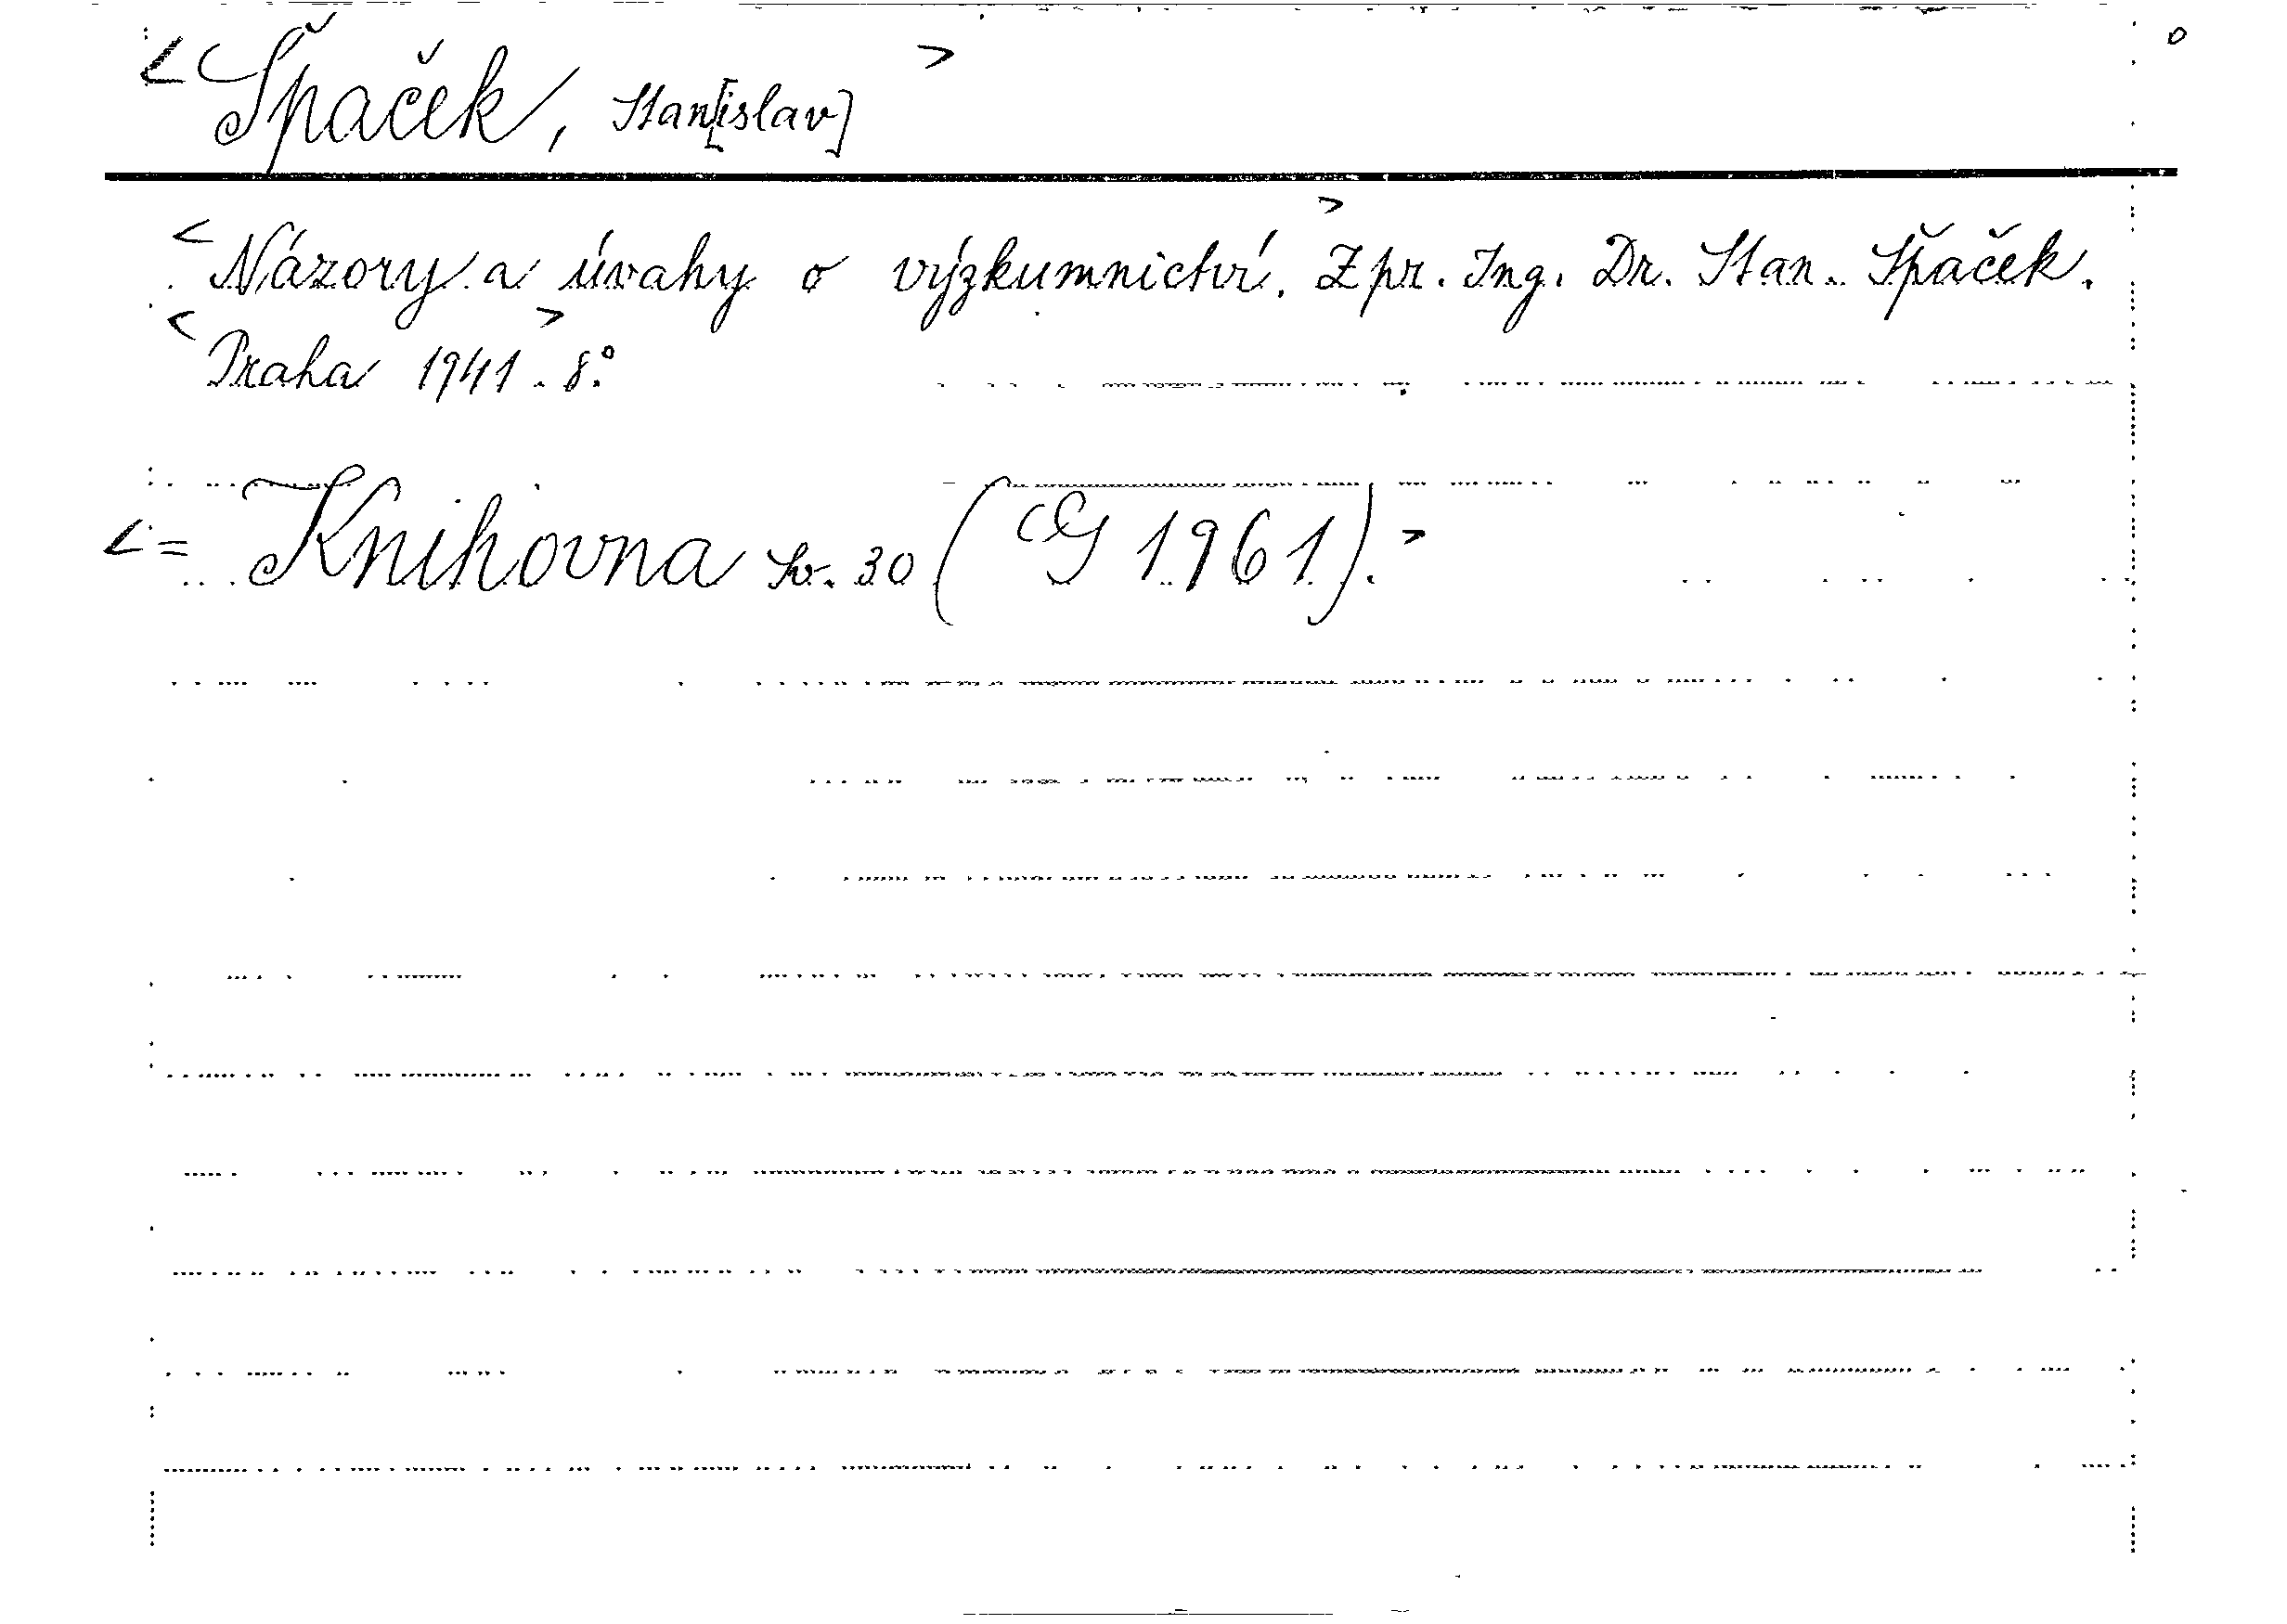 <Špaček, Stan[islav]>
<Názory a úvahy o výzkumnictví.> Zpr. Ing. Dr. Stan. Špaček.
<Praha 1941>. 8°.
<= Knihovna Sv. 30 (G 1961).>